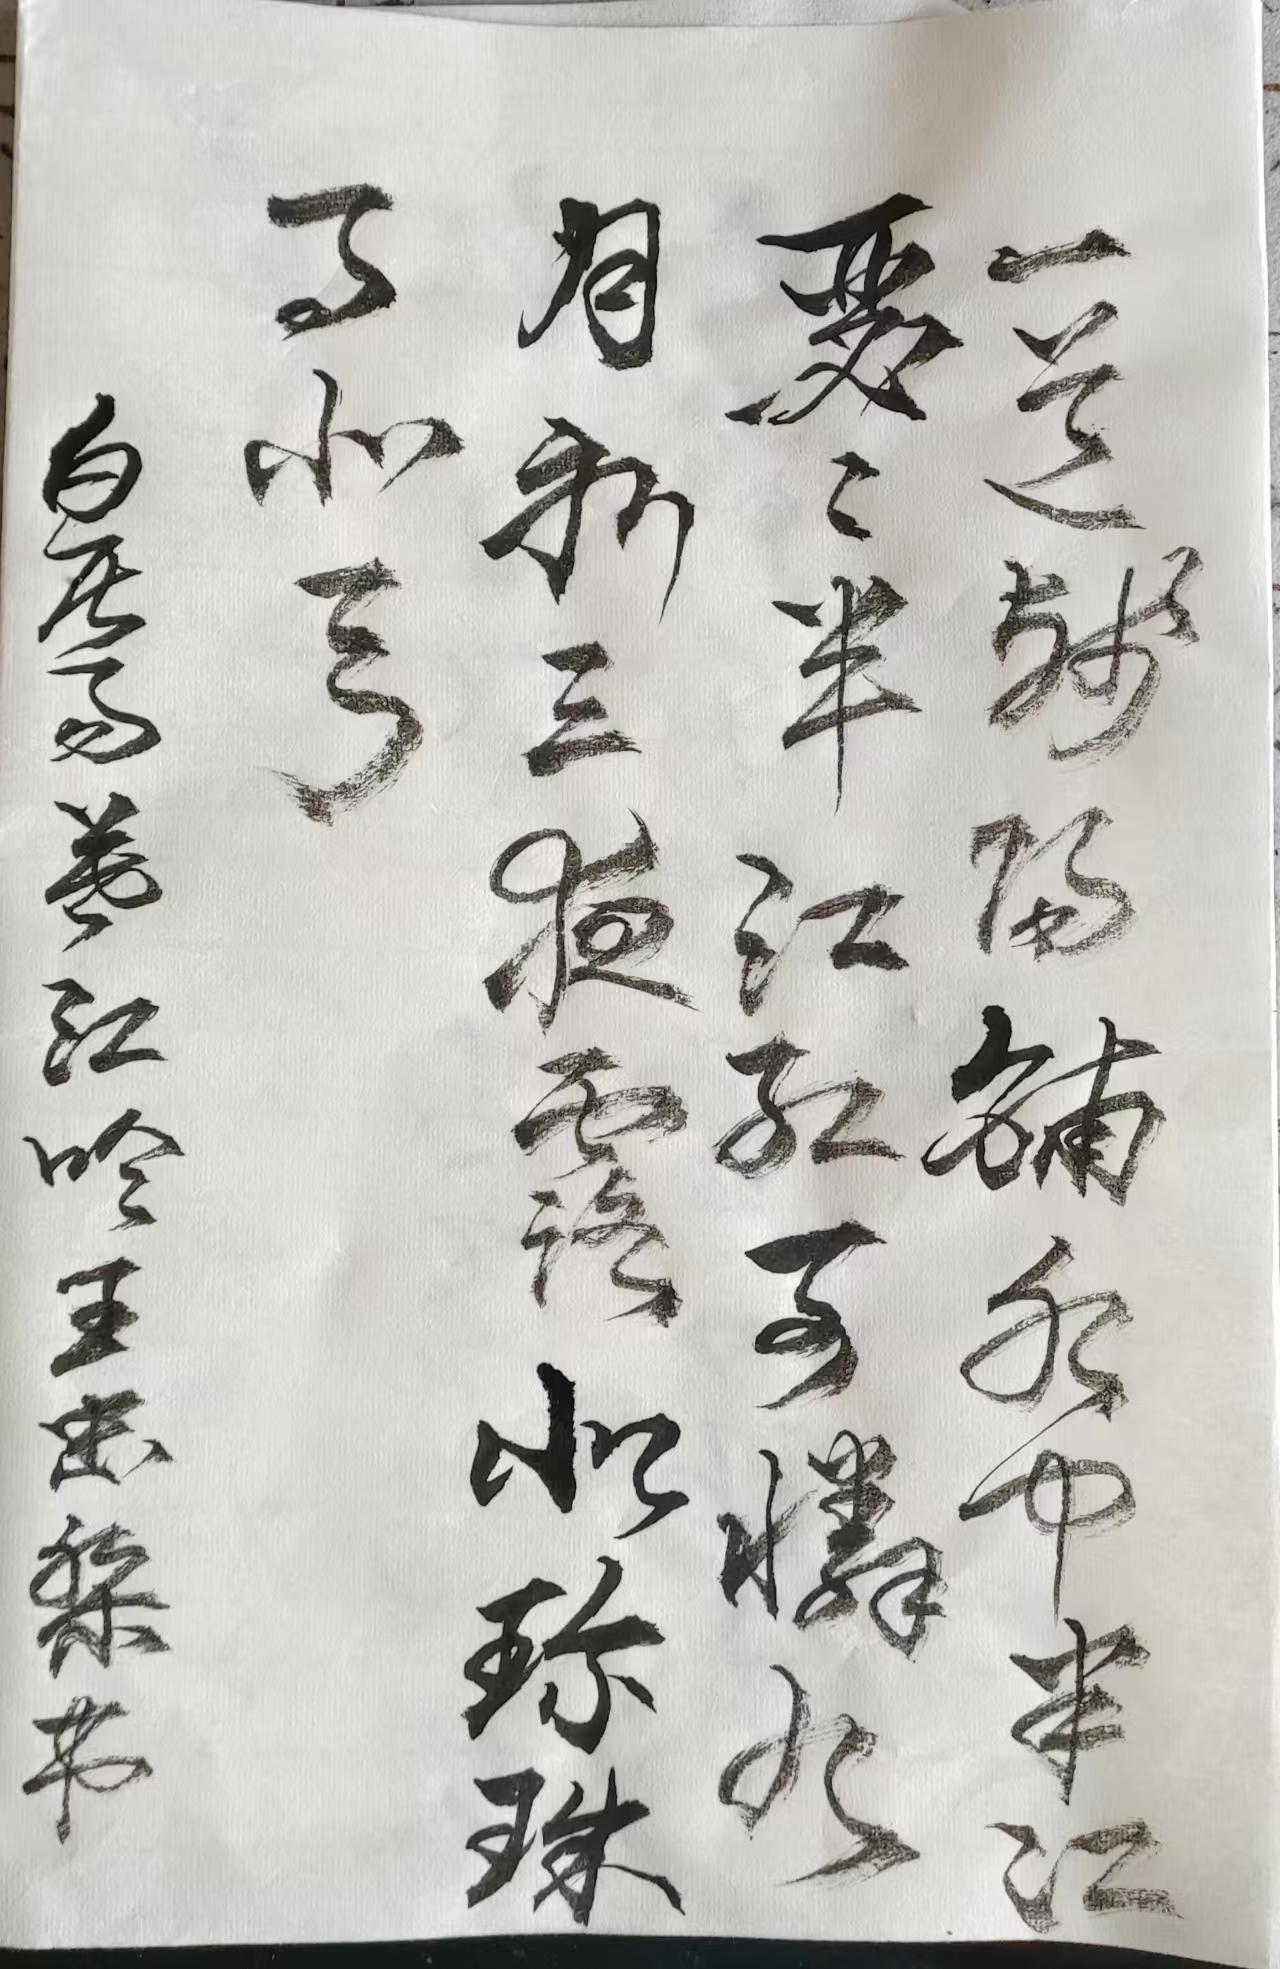 一道残阳铺水中半江
瑟〻半江红可憐九
月初三夜露似珍珠
月似弓
白居易暮江吟王忠书